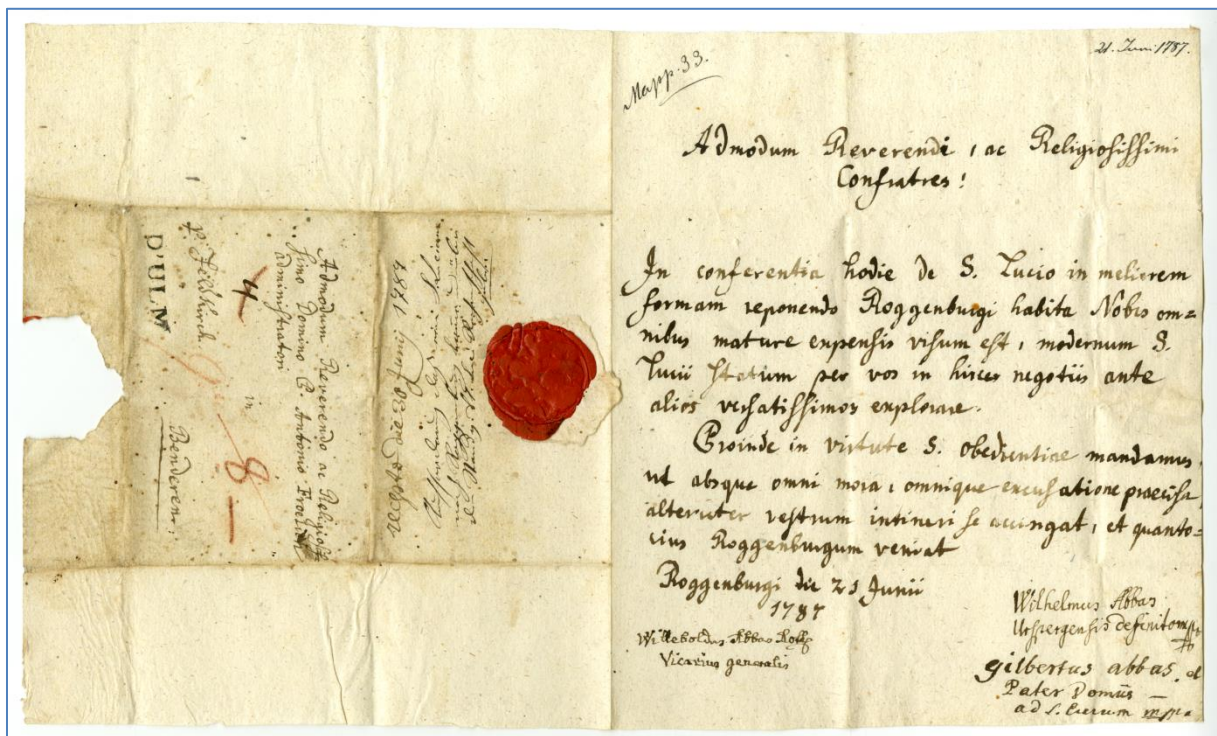 21. Juni 1787.
Mapp. 33.
Admodum Reverendi, ac Religiosissimi
Confratres!
In conferentia hodie de S. Lucio in meliorem
formam reponendo Roggenburgi habita Nobis om=
nibus mature expensis visum est, modernum S.
Lucii statum per vos in hisce negotiis ante
alios versatissimos explorare.
Proinde in virtute S. obedientiae mandamus
ut absque omni mora, omnique excusatione praecisa
alteruter vestrum itineri se accingat, et quanto=
cius Roggenburgum veniat
Roggenburgi die 21 Junii
1787
Willeboldus Abbas Rogg
Vicarius generalis
Wilhelmus Abbas
Urspergensis definitor mpp
Gilbertus abbas. et
Pater Domûs
ad S. Lucium mppa
die 30 Junij 1787
Admodum Reverendo ac Religiosis=
simo Domino P. Antonio Froelich
administratori
in
Benderen
4
8
p. Feldkirch
D'ULM